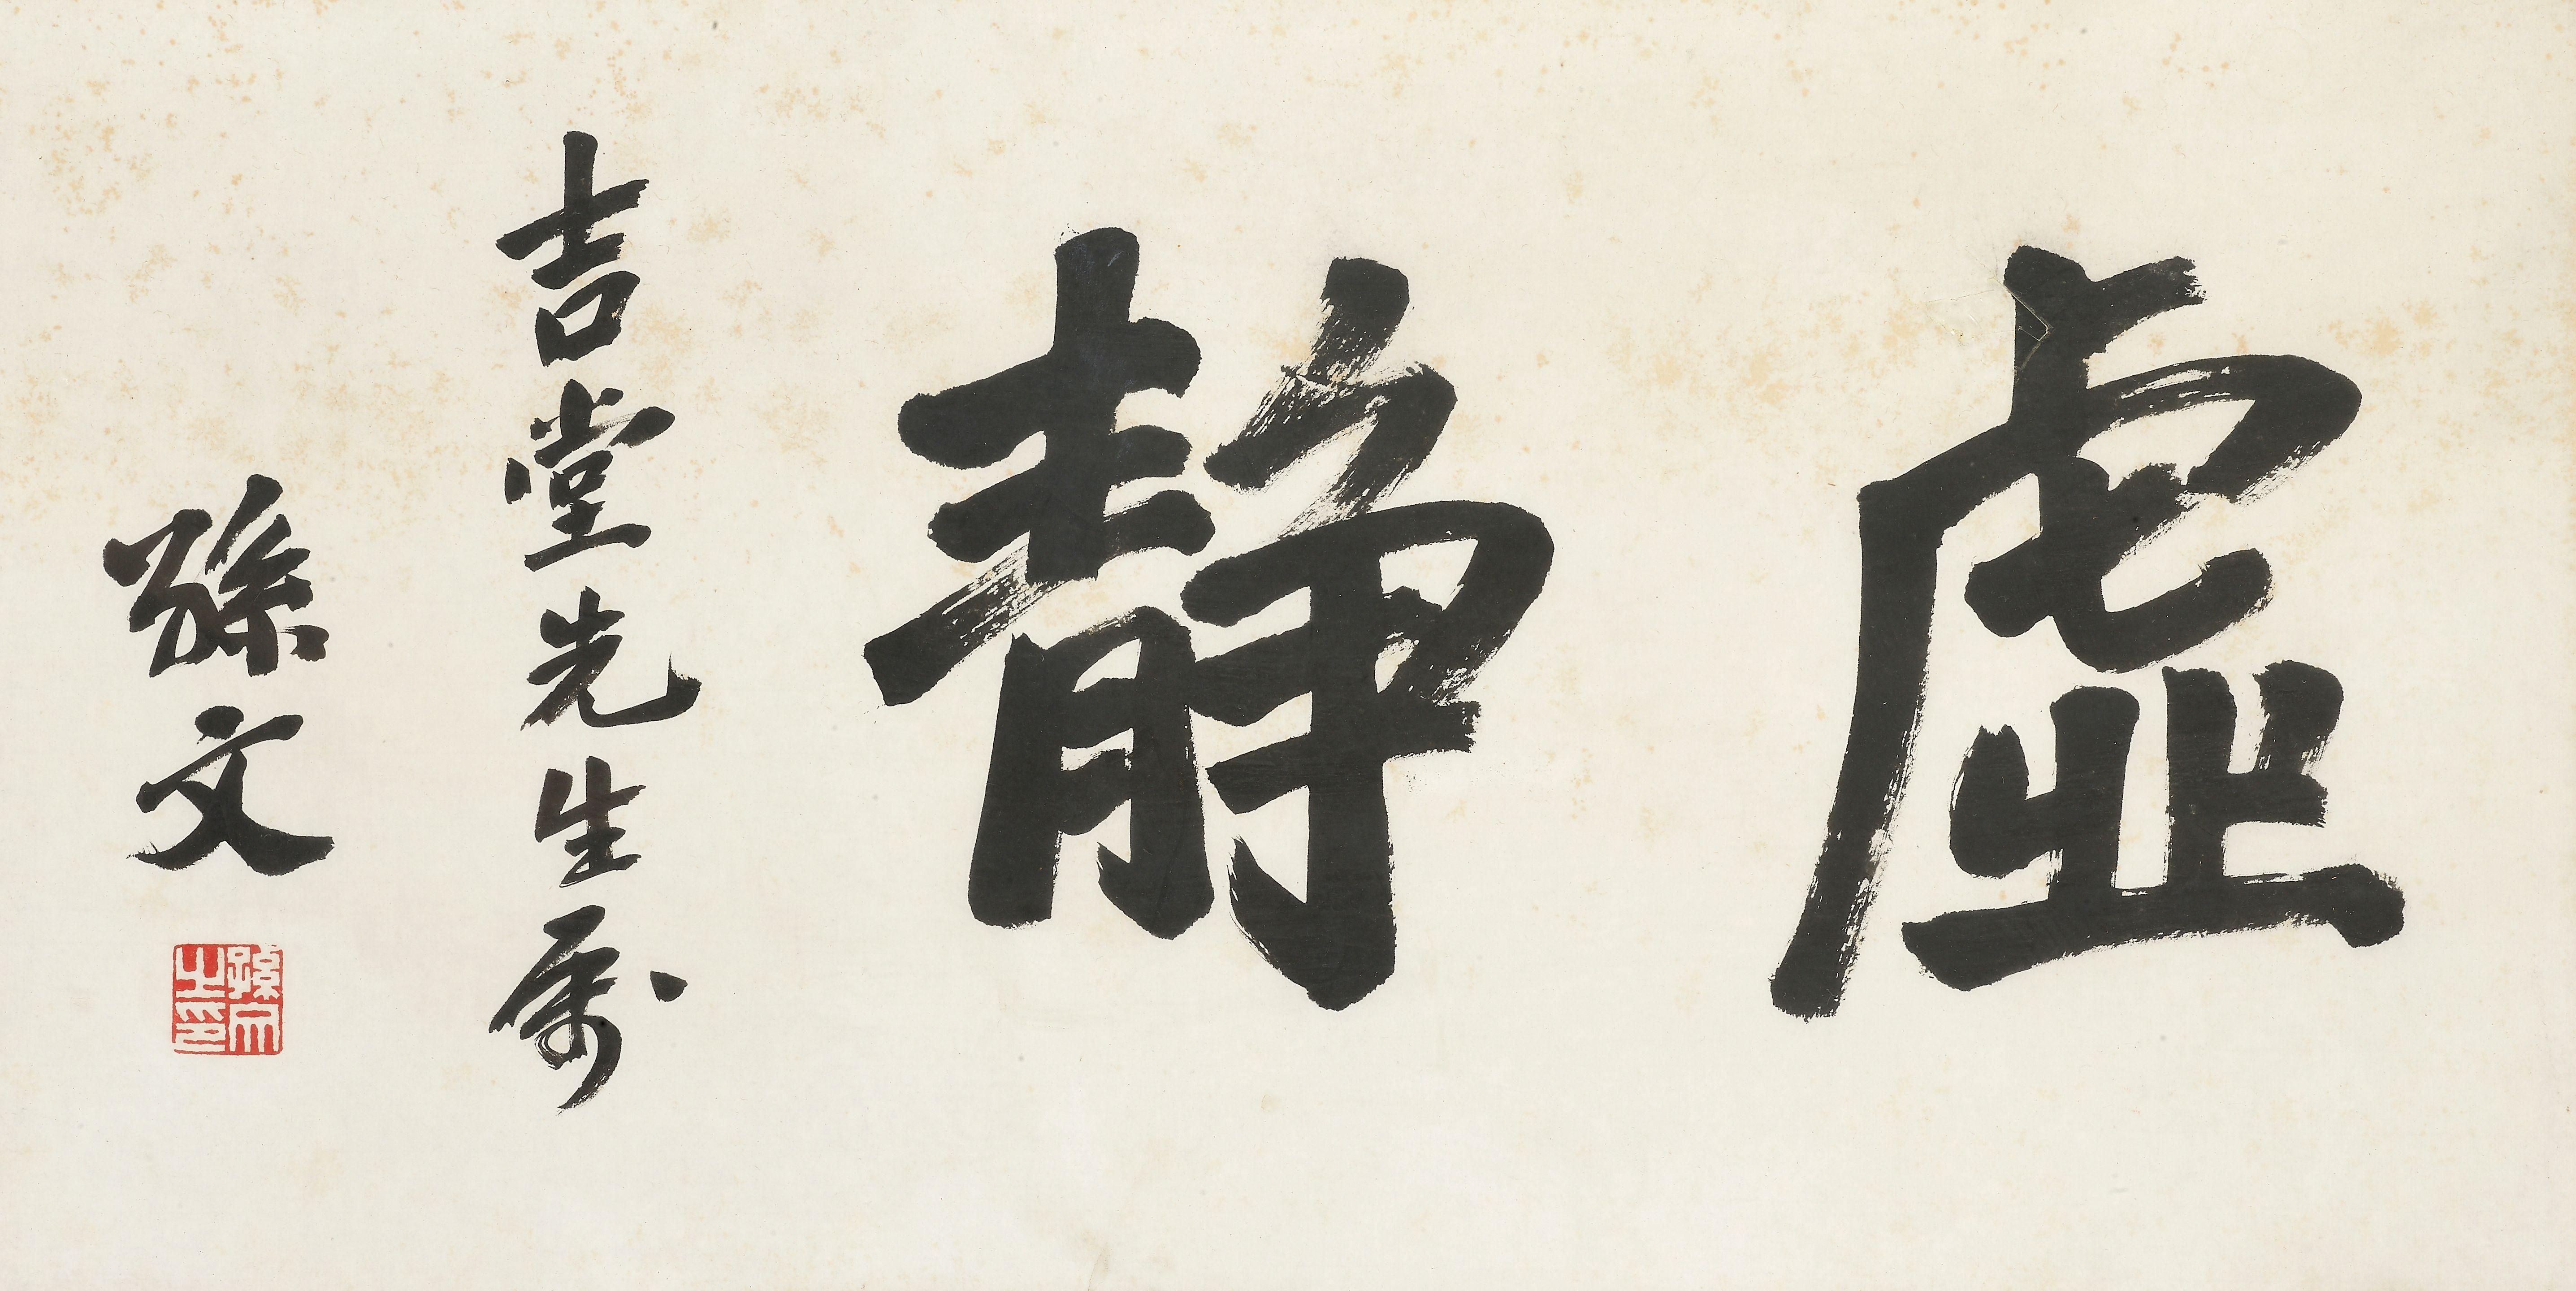 虛靜
吉堂先生屬
孫文
孫文之印